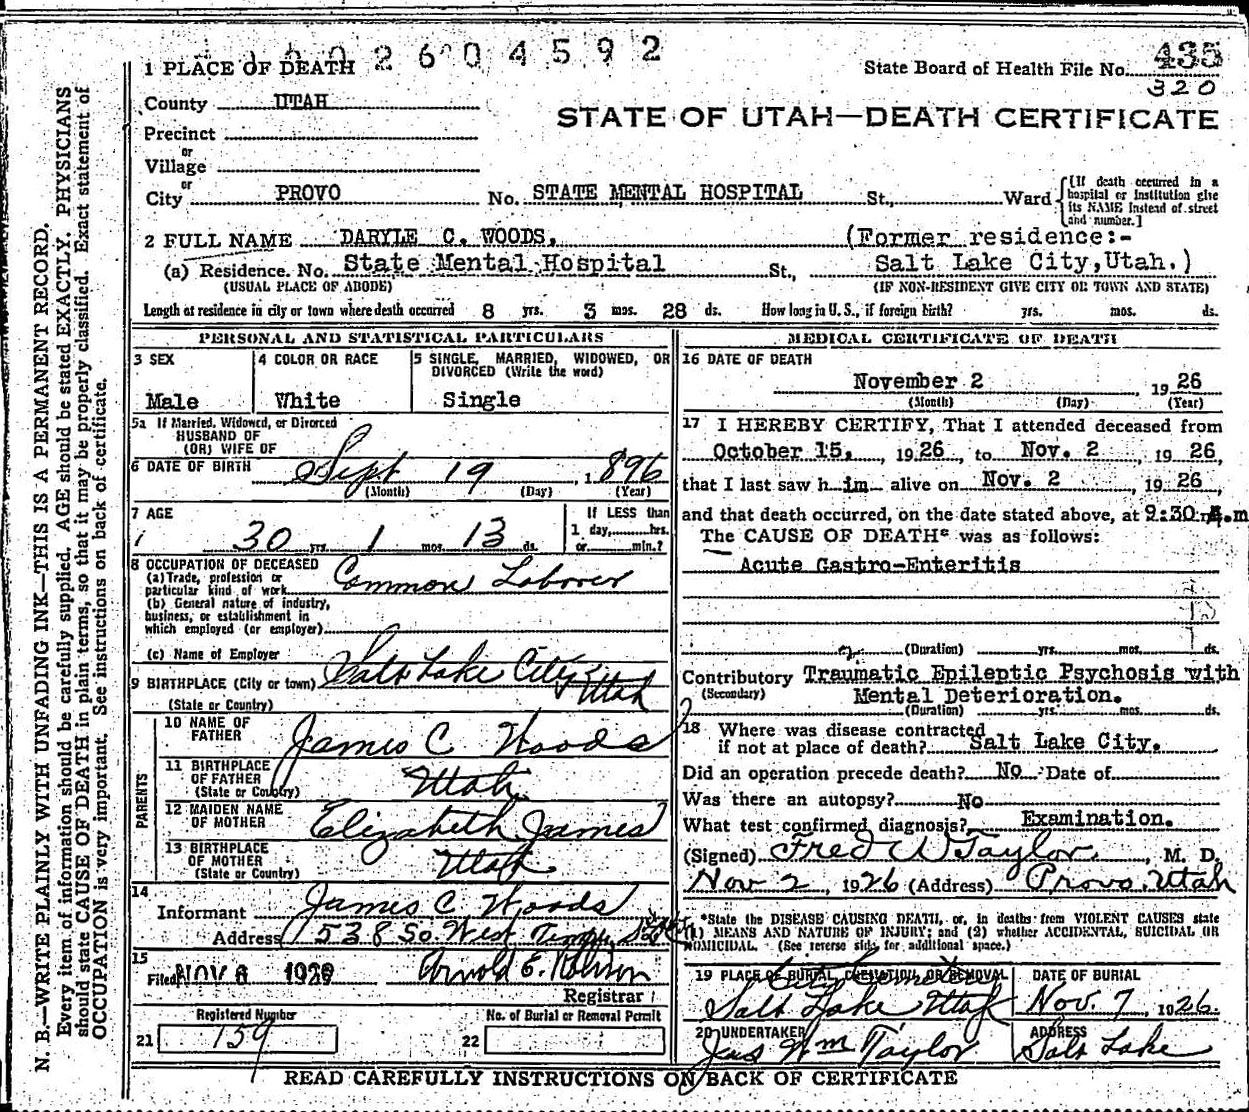 2604592
1 PLACE OF DEATH
State Board of Health File No. 435
320
County UTAH
STATE OF UTAH—DEATH CERTIFICATE
Precinct
or
Village
or
City PROVO No. STATE MENTAL HOSPITAL St., Ward
[If death occurred in a
hospital or institution give
its NAME instead of street
and number.]
2 FULL NAME DARYLE C. WOODS. (Former residence:-
(a) Residence. No. State Mental Hospital St., Salt Lake City, Utah.)
(USUAL PLACE OF ABODE) (IF NON-RESIDENT GIVE CITY OR TOWN AND STATE)
Length of residence in city or town where death occurred 8 yrs. 3 mos. 28 ds. How long in U. S., if foreign birth? yrs. mos. ds.
PERSONAL AND STATISTICAL PARTICULARS
3 SEX
Male
4 COLOR OR RACE
White
5 SINGLE, MARRIED, WIDOWED, OR
DIVORCED (Write the word)
Single
5a If Married, Widowed, or Divorced
HUSBAND OF
(OR) WIFE OF
6 DATE OF BIRTH Sept 19, 1896
(Month) (Day) (Year)
7 AGE
30 yrs. 1 mos. 13 ds.
If LESS than
1 day, hrs.
or min.?
8 OCCUPATION OF DECEASED
(a) Trade, profession or
particular kind of work Common Laborer
(b) General nature of industry,
business, or establishment in
which employed (or employer)
(c) Name of Employer
9 BIRTHPLACE (City or town) Salt Lake City
(State or Country) Utah
PARENTS
10 NAME OF
FATHER James C Woods
11 BIRTHPLACE
OF FATHER
(State or Country) Utah
12 MAIDEN NAME
OF MOTHER Elizabeth James
13 BIRTHPLACE
OF MOTHER
(State or Country) Utah
14
Informant James C Woods
Address 1538 So West Temple
15
Filed NOV 6 1926 Arnold E. Robison
Registrar
Registered Number
21 159
No. of Burial or Removal Permit
22
MEDICAL CERTIFICATE OF DEATH
16 DATE OF DEATH
November 2 1926
(Month) (Day) (Year)
17 I HEREBY CERTIFY, That I attended deceased from
October 15, 1926, to Nov. 2, 1926,
that I last saw him alive on Nov. 2, 1926,
and that death occurred, on the date stated above, at 9:30 m
The CAUSE OF DEATH* was as follows:
Acute Gastro-Enteritis
(Duration) yrs. mos. ds.
Contributory Traumatic Epileptic Psychosis with
(Secondary) Mental Deterioration.
(Duration) yrs. mos. ds.
18 Where was disease contracted
if not at place of death? Salt Lake City.
Did an operation precede death? No Date of
Was there an autopsy? No
What test confirmed diagnosis? Examination.
(Signed) Fred W Taylor, M. D.
Nov 2, 1926 (Address) Provo, Utah
*State the DISEASE CAUSING DEATH, or, in deaths from VIOLENT CAUSES state
(1) MEANS AND NATURE OF INJURY; and (2) whether ACCIDENTAL, SUICIDAL OR
HOMICIDAL. (See reverse side for additional space.)
19 PLACE OF BURIAL, CREMATION, OR REMOVAL
City Cemetery
Salt Lake Utah
DATE OF BURIAL
Nov. 7, 1926.
20 UNDERTAKER
Jas Wm Taylor
ADDRESS
Salt Lake
READ CAREFULLY INSTRUCTIONS ON BACK OF CERTIFICATE
N. B.—WRITE PLAINLY WITH UNFADING INK—THIS IS A PERMANENT RECORD.
Every item of information should be carefully supplied. AGE should be stated EXACTLY. PHYSICIANS
should state CAUSE OF DEATH in plain terms, so that it may be properly classified. Exact statement of
OCCUPATION is very important. See instructions on back of certificate.